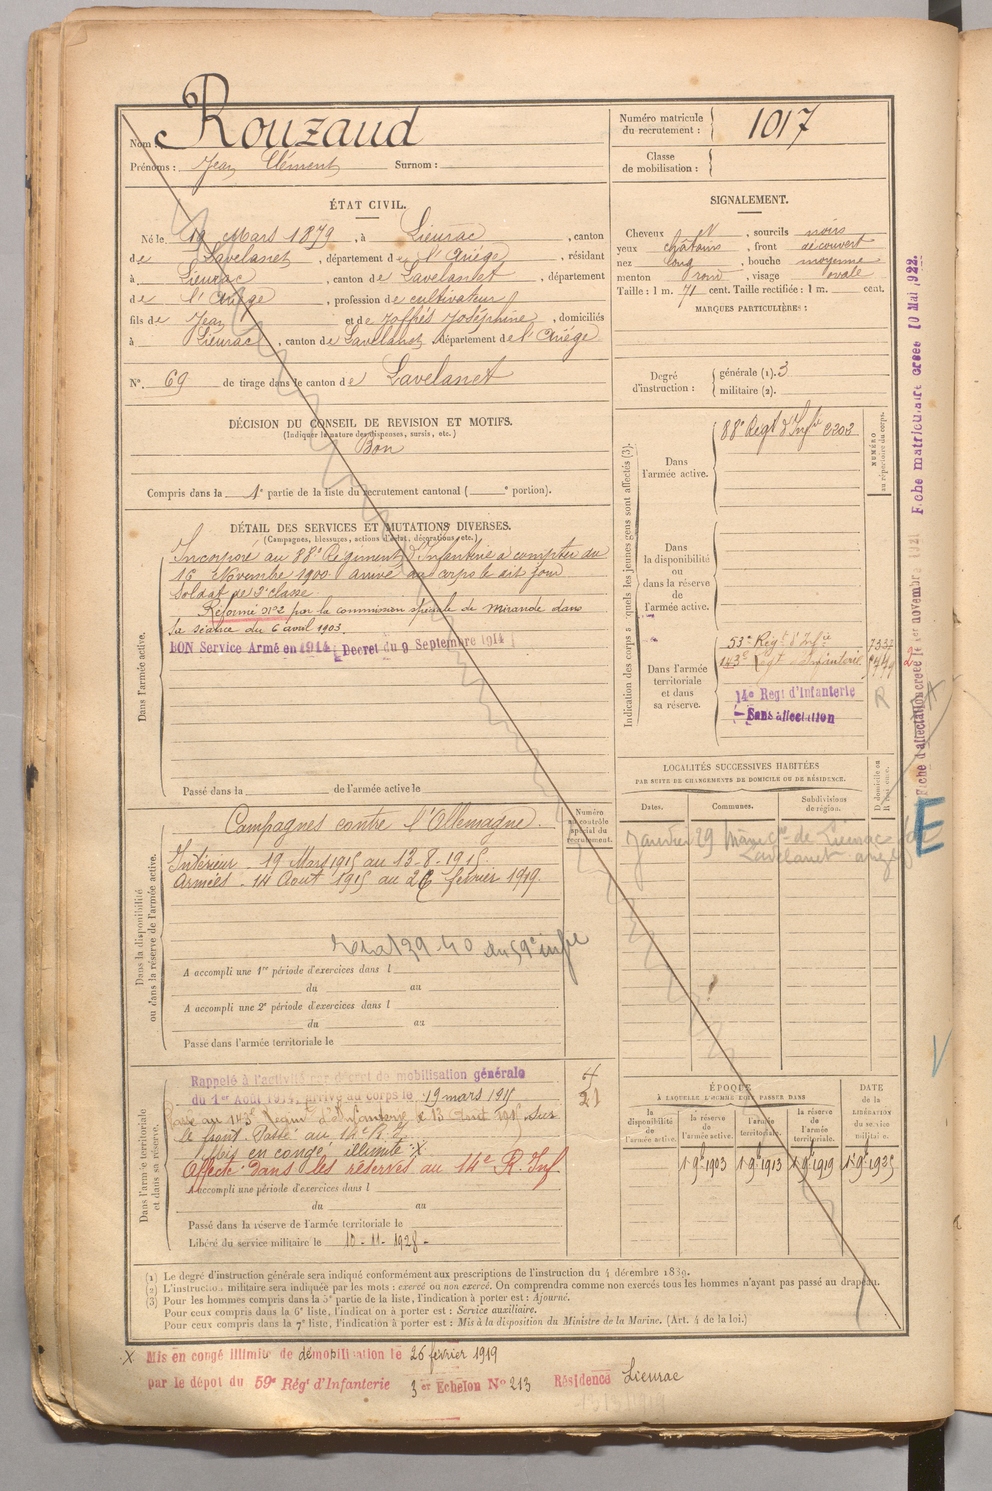 Nom : Rouzaud
Prénoms : Jean Clément Surnom :
Numéro matricule du recrutement : 1017
Classe de mobilisation :
ÉTAT CIVIL.
Né le 19 Mars 1879, à Lieurac, canton
de Lavelanet, département de l'Ariège, résidant
à Lieurac, canton de Lavelanet, département
de l'Ariège, profession de cultivateur
fils de Jean et de Joffrès Joséphine, domiciliés
à Lieurac, canton de Lavelanet, département de l'Ariège
N°. 69 de tirage dans le canton de Lavelanet
SIGNALEMENT.
Cheveux et, sourcils noirs
yeux châtains, front découvert
nez long, bouche moyenne
menton rond, visage ovale
Taille : 1 m. 71 cent. Taille rectifiée : 1 m. cent.
MARQUES PARTICULIÈRES :
Degré d'instruction : générale (1). 3
militaire (2).
DÉCISION DU CONSEIL DE REVISION ET MOTIFS.
(Indiquer la nature des dispenses, sursis, etc.)
Bon
Compris dans la 1e partie de la liste du recrutement cantonal ( e portion).
DÉTAIL DES SERVICES ET MUTATIONS DIVERSES.
(Campagnes, blessures, actions d'éclat, décorations, etc.)
Dans l'armée active.
Incorporé au 88e Régiment d'Infanterie à compter du
16 Novembre 1900 arrivé au corps le dit jour
Soldat de 2e classe
Réformé n°2 par la commission spéciale de Mirande dans
la séance du 6 avril 1903.
BON Service Armé en 1914 Decret du 9 Septembre 1914
Passé dans la de l'armée active le
Indication des corps auxquels les jeunes gens sont affectés (3).
NUMÉRO au répertoire du corps.
Dans l'armée active.
88e Regt d'Infie 2202
Dans la disponibilité ou dans la réserve de l'armée active.
Dans l'armée territoriale et dans sa réserve.
53e Régt d'Infie
143e Régt d'Infanterie
14e Regt d'Infanterie
Sans affectation
R
Dans la disponibilité ou dans la réserve de l'armée active.
Numéro au contrôle spécial du recrutement.
Campagnes contre l'Allemagne.
Intérieur - 19 Mars 1915 au 13-8-1915.
Armées - 14 Août 1915 au 26 février 1919.
du 59e infie
A accompli une 1re période d'exercices dans l
du au
A accompli une 2e période d'exercices dans l
du au
Passé dans l'armée territoriale le
LOCALITÉS SUCCESSIVES HABITÉES
PAR SUITE DE CHANGEMENTS DE DOMICILE OU DE RÉSIDENCE.
Dates. Communes. Subdivisions de région. D. domicile ou R. résidence.
Janvier 29 de Lieurac
Lavelanet
Dans l'armée territoriale et dans sa réserve.
Rappelé à l'activité par décret de mobilisation générale
du 1er Août 1914, arrivé au corps le 19 mars 1915
Passé au 143e Régiment d'Infanterie le 13 Août 1915 Sur
le front. Passé au 14e R.I.
Mis en congé illimité X
Affecté dans les réserves au 14e R. Inf
A accompli une période d'exercices dans l
du au
Passé dans la réserve de l'armée territoriale le
Libéré du service militaire le 10-11-1928-
4
21
ÉPOQUE À LAQUELLE L'HOMME DOIT PASSER DANS
la disponibilité de l'armée active. la réserve de l'armée active. l'armée territoriale. la réserve de l'armée territoriale. DATE de la LIBÉRATION du service militaire.
1 9bre 1903 1 9bre 1913 1 9bre 1919 1er 9bre 1925
(1) Le degré d'instruction générale sera indiqué conformément aux prescriptions de l'instruction du 4 décembre 1889.
(2) L'instruction militaire sera indiquée par les mots : exercé ou non exercé. On comprendra comme non exercés tous les hommes n'ayant pas passé au drapeau.
(3) Pour les hommes compris dans la 5e partie de la liste, l'indication à porter est : Ajourné.
Pour ceux compris dans la 6e liste, l'indication à porter est : Service auxiliaire.
Pour ceux compris dans la 7e liste, l'indication à porter est : Mis à la disposition du Ministre de la Marine. (Art. 4 de la loi.)
X Mis en congé illimité de démobilisation le 26 février 1919
par le dépot du 59e Régt d'Infanterie 3er Echelon N° 213 Résidence Lieurac
Fiche d'affectation créée le 1er novembre 1921 Fiche matriculaire créée 10 Mai 1922.
E